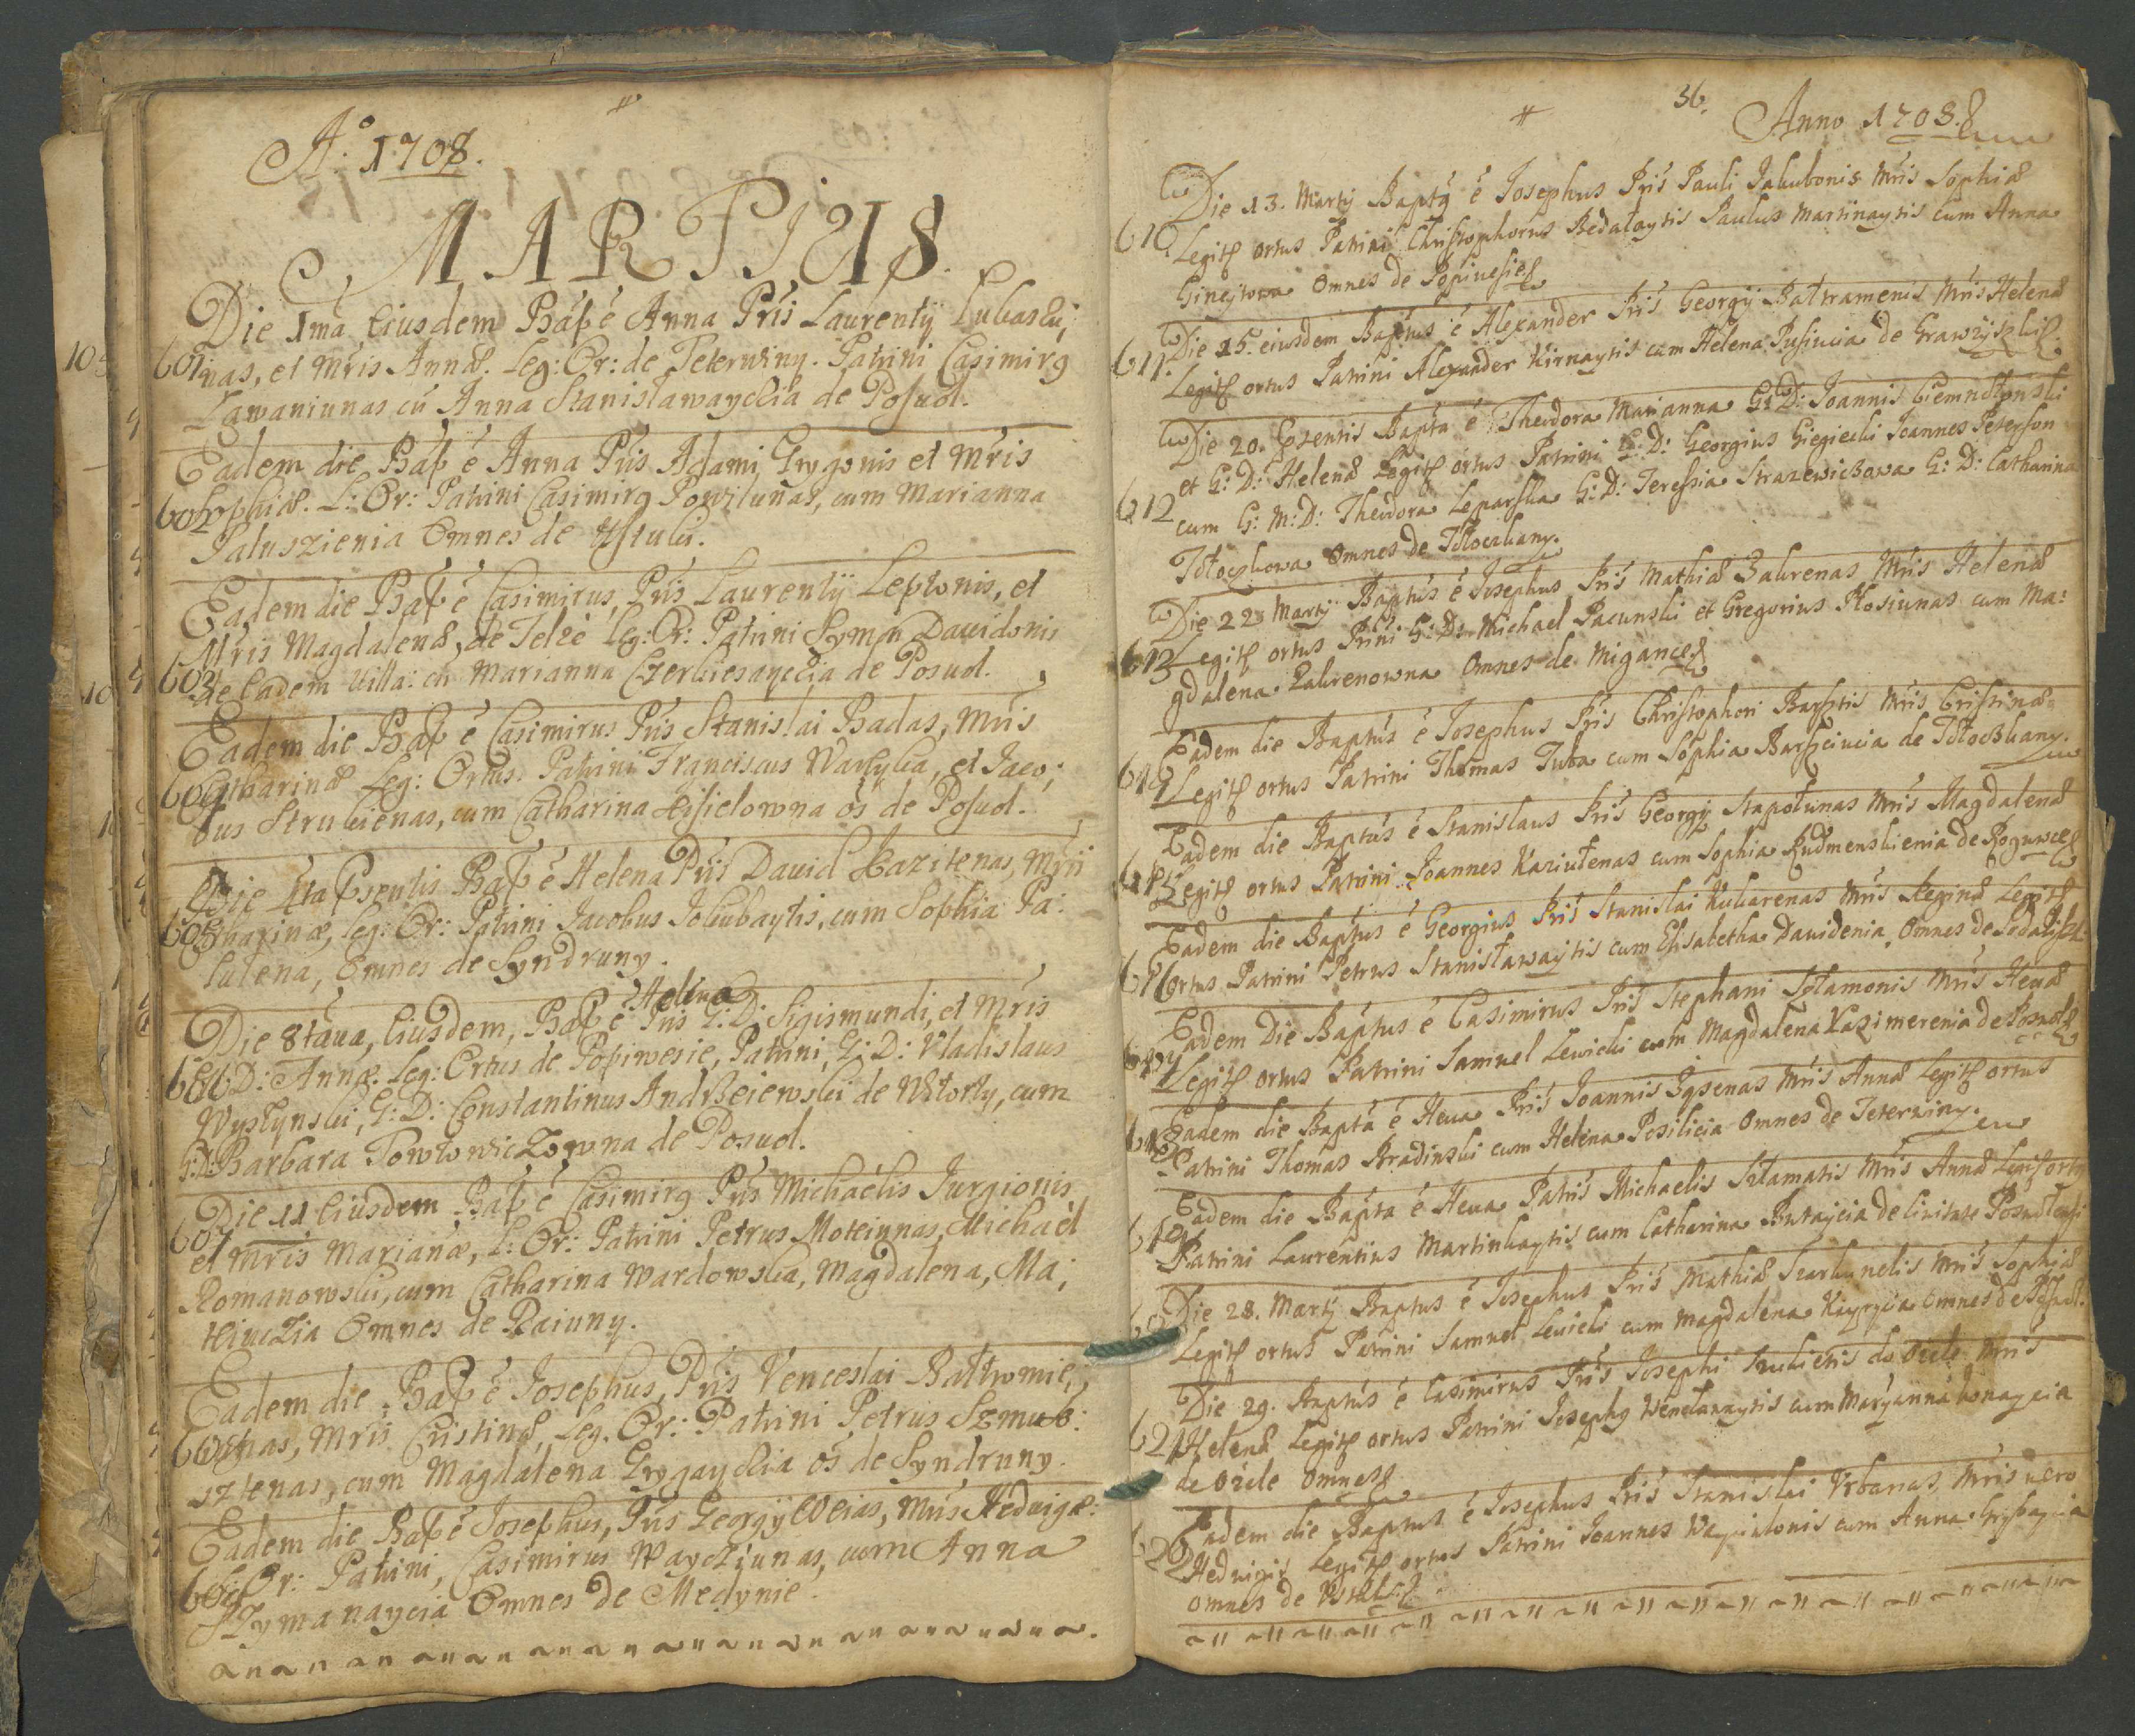 Aº 1708.
MARTIUS.
Die 1ma Eiusdem Bap: é Anna Pris Laurentÿ Lukasku;
601 nas, et Mris Annæ. Leg: Or: de Teterwiny. Patrini Casimirg
Lawaniunas cū Anna Stanisławayckia de Posuol.
Eadem die Bap: é Anna Pris Adami Grygonis et Mris
602 Sophiæ. L: Or: Patrini Casimirg Powilunas, cum Marianna
Paluszienia Omnes de Ustuki.
Eadem die Bap: é Casimirus, Pris Laurentÿ Leptonis, et
Mris Magdalenæ, de Telze Leg: Or: Patrini Symon Dauidonis
603 de Eadem Villa: cū Marianna Czerkiesayckia de Posuol.
Eadem die Bap: é Casimirus Pris Stanislai Badas, Mris
604 Catharinæ Leg: Ortus. Patrini Franciscus Warkyka, et Jaco;
bus Strukienas, cum Catharina Kisielowna ōs de Posuol.
Die 4ta Psentis Bap: é Helena Pris Dauid Kazitenas, Mris
605 Catharinæ, Leg: Or: Patrini Jacobus Jokubaytis, cum Sophia Pa:
lutena, Omnes de Syndruny.
Helena
Die 8taua, Eiusdem, Bap: é Pris G: D: Sigismundi, et Mris
606 G: D: Annæ. Leg: Ortus de Popiwesie, Patrini, G: D: Vladislaus
Wystynski, G: D: Constantinus Andrzeiewski de Wstorky, cum
G: D: Barbara Towtowiczowna de Posuol.
Die 11 Eiusdem Bap: é Casimirg Pris Michaelis Jurgionis
607 et Mris Marianæ, L: Or: Patrini Petrus Moteiunas, Michael
Romanowski, cum Catharina Wardowska, Magdalena, Ma;
tiiuczia Omnes de Raiuny.
Eadem die Bap: é Josephus, Pris Venceslai Battromie;
608 iunas, Mris Cristinæ, Leg. Or: Patrini Petrus Szmuk:
sztenas, cum Magdalena Grygayckia ōs de Syndruny.
Eadem die Bap: é Josephus, Pris Georgÿ Weias, Mris Hedvigæ:
609 L: Or: Patrini, Casimirus Waycziunas, cum Anna
Szymanaycia Omnes de Medynie.
36.
Anno 1708.
Die 13. Martÿ Baptg é Josephus Pris Pauli Jakubonis Mris Sophiæ
610. Legit ortus Patrini Christophorus Bedalaytis Paulus Martinaytis cum Anna
Gineytowa Omnes de Popiuesie
Die 15. eiusdem Baptus é Alexander Pris Georgÿ Battramenis Mris Helenæ
611. Legit ortus Patrini Alexander Kirnaytis cum Helena Pusiucia de Grawzyszkis.
Die 20. Psentis Bapta é Theodora Marianna G: D: Joannis Ciemnołonski
et G: D: Helenæ Legit ortus Patrini G: D: Georgius Giegiecki Joannes Peterson
612 cum G: M: D: Theodora Leparska G: D: Teressia Strazewiczowa G: D: Catharina
Tołoczkowa Omnes de Tołoczkany.
Die 22 Martÿ Baptus é Josephus Pris Mathiæ Zakrenas Mris Helenæ
613 Legit ortus Prini G: D: Michael Pacunski et Gregorius Plosiunas cum Ma:
gdalena Zakrenowna Omnes de Migance
Eadem die Baptus é Josephus Pris Christophori Barsztis Mris Cristinæ
614 Legit ortus Patrini Thomas Juba cum Sophia Barszciucia de Tołoczkany.
Eadem die Baptus é Stanislaus Pris Georgÿ Stapołunas Mris Magdalenæ
615 Legit ortus Patrini Joannes Kaziułenas cum Sophia Rudmenskienia de Roguwce
Eadem die Baptus é Georgius Pris Stanislai Kukarenas Mris Reginæ Legit
616 ortus Patrini Petrus Stanisławaytis cum Elisabetha Dauidenia, Omnes de Sodaliszk
Eadem Die Baptus é Casimirus Pris Stephani Szłamonis Mris Heuæ
617 Legit ortus Patrini Samuel Lewicki cum Magdalena Kazimerenia de Posuol
618 Eadem die Bapta é Heua Pris Joannis Iysenas Mris Annæ Legit ortus
Patrini Thomas Bradinski cum Helena Pesilicia Omnes de Teterwiny.
Eadem die Bapta é Heua Patris Michaelis Szłamatis Mris Annæ Legit ortg
619 Patrini Laurentius Martinkaytis cum Catharina Butaycia de Ciuitate Posuolensi
620 Die 28. Martÿ Baptus é Josephus Pris Mathiæ Szarkunelis Mris Sophiæ
Legit ortus Patrini Samuel Lewicki cum Magdalena Kiyzycia omnes de Posuol.
Die 29. Baptus é Casimirus Pris Josephi Trukietis de Oziele Mris
621 Helenæ Legit ortus Patrini Josephg Wenclawaytis cum Maryanna Jonaycia
de Oziele Omnes
622 Eadem die Baptus é Josephus Pris Stanislai Urbanas Mris uero
Hedwigis Legit ortus Patrini Joannes Waysiułonis cum Anna Gryszaycia
omnes de Ustuki